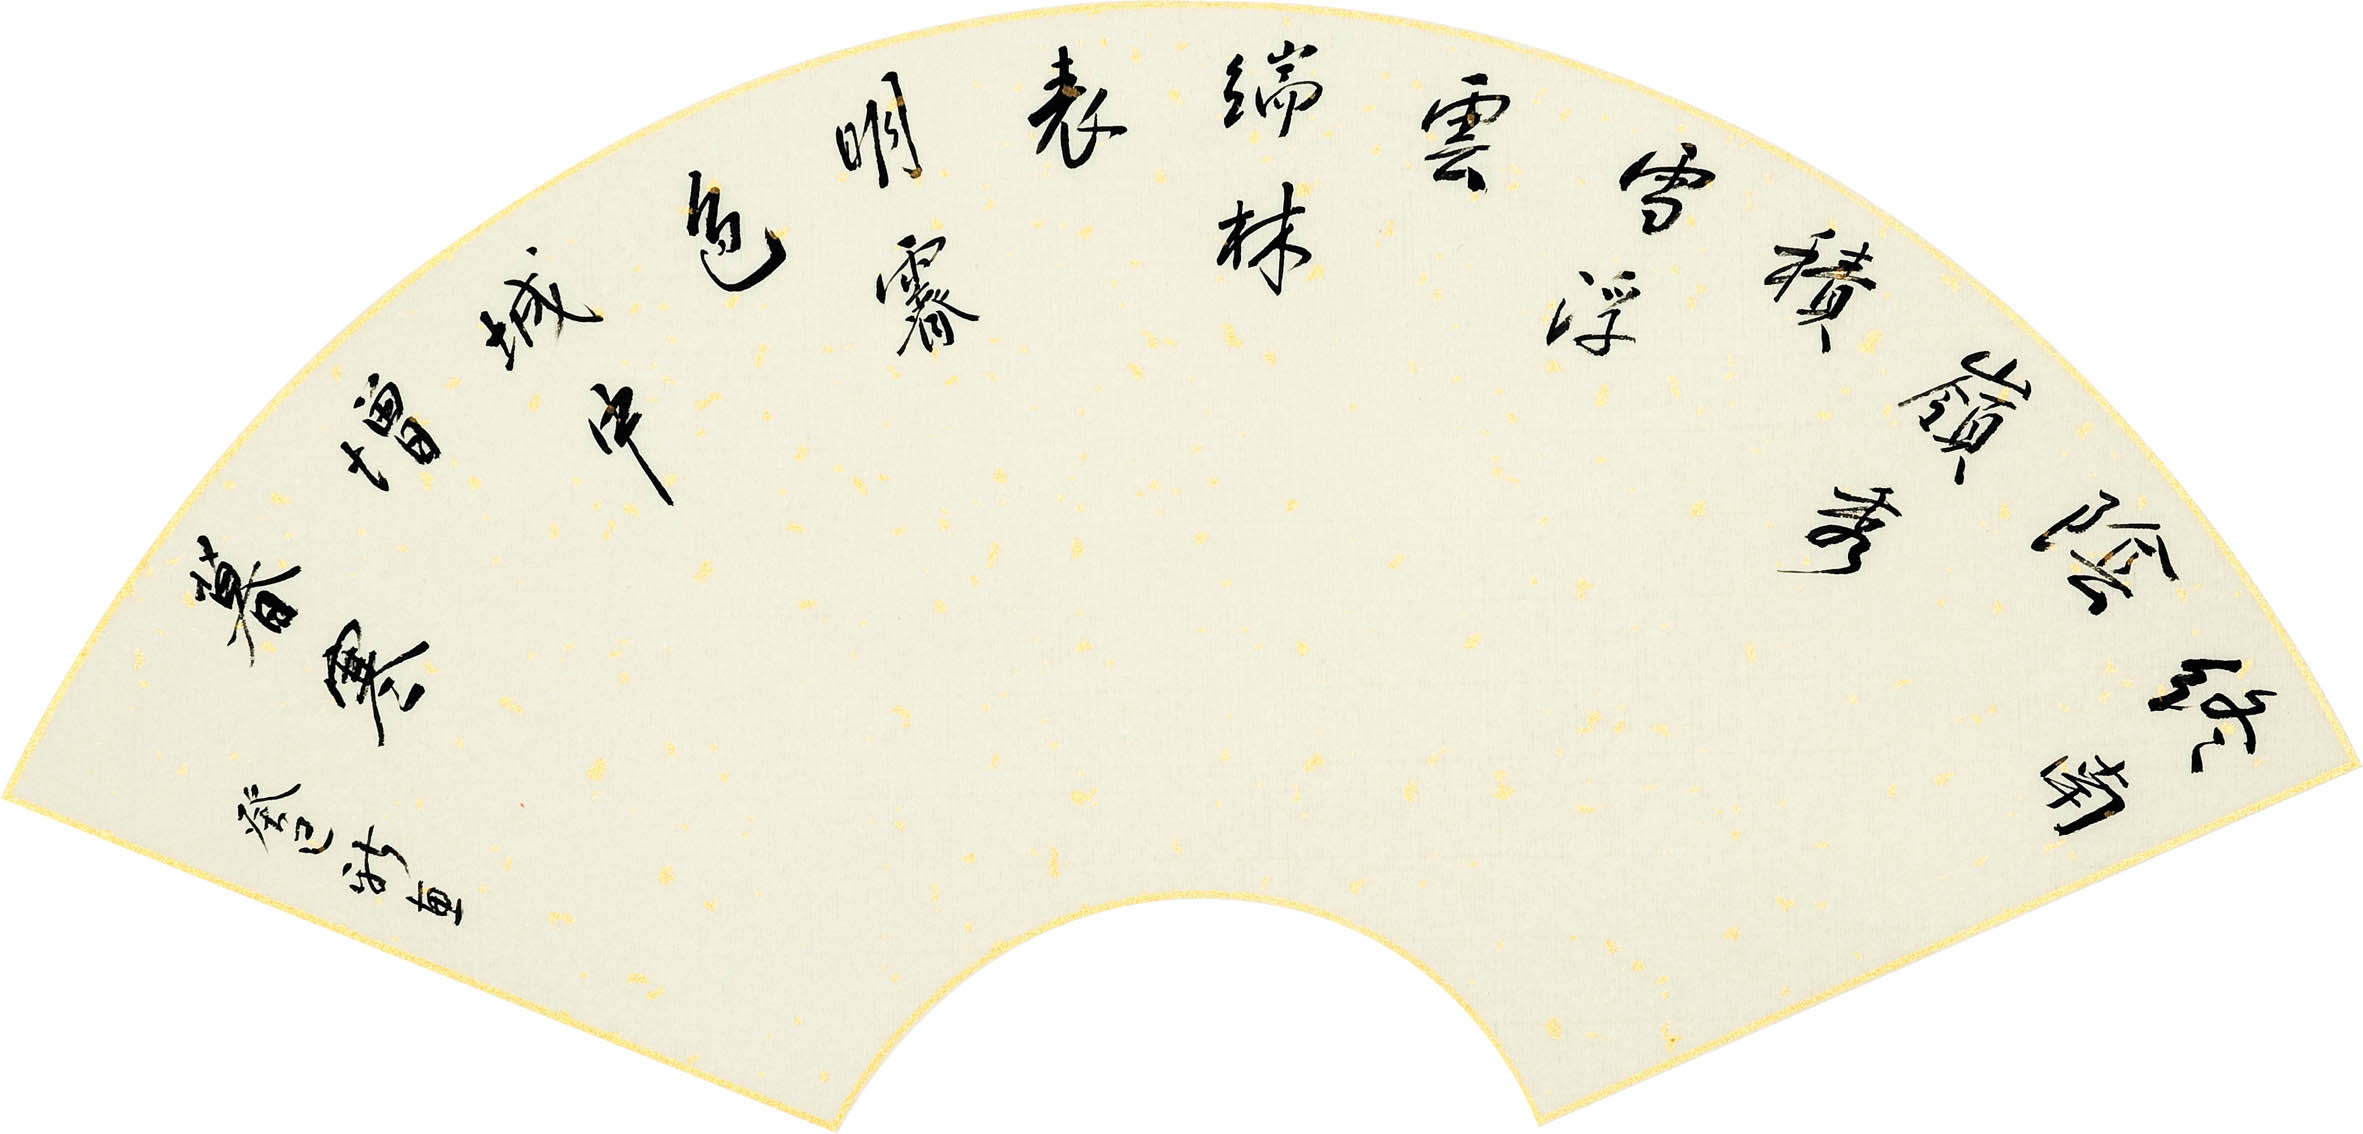 終南
陰
嶺秀
積
雪浮
雲
端林
表
明霽
色
城中
增
暮寒
癸巳